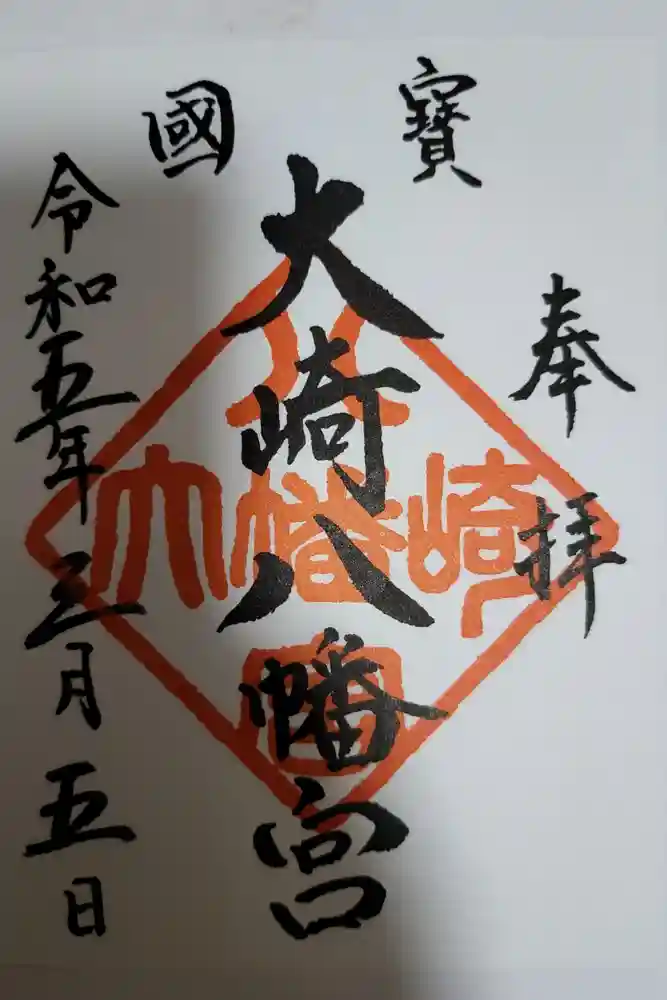 奉拝
國寶
大崎八幡宮
令和五年三月五日
八
大幡崎
宮